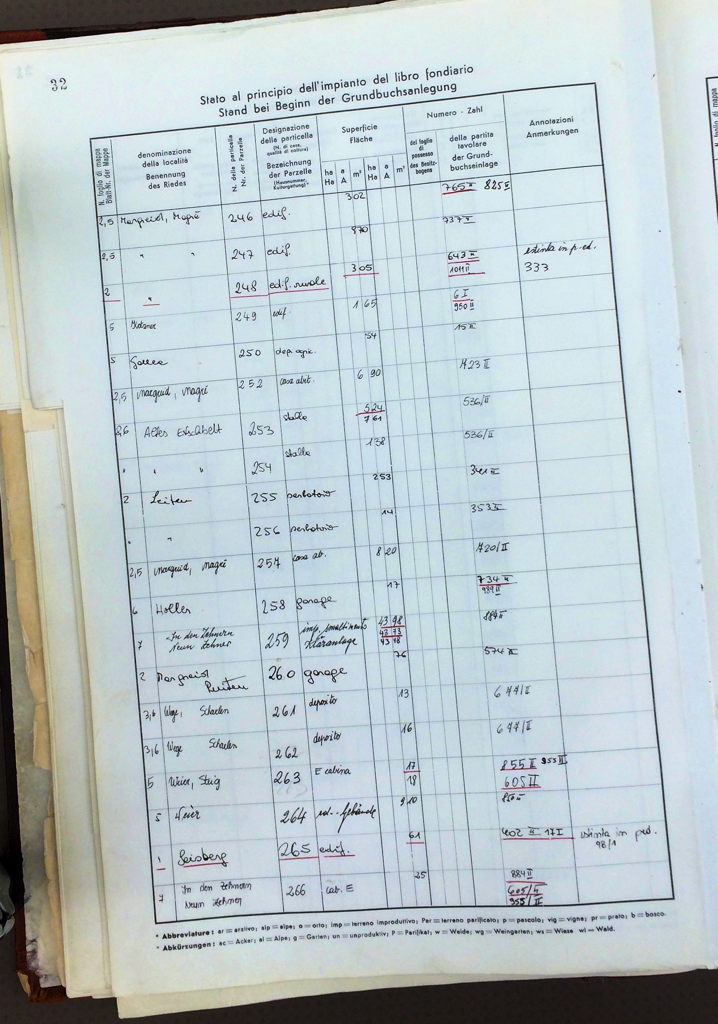 32
Stato al principio dell'impianto del libro fondiario
Stand bei Beginn der Grundbuchsanlegung
N. foglio di mappa
Blatt-Nr. der Mappe
denominazione
della località
Benennung
des Riedes
N. della particella
Nr. der Parzelle
Designazione
della particella
(N. di casa,
qualità di coltura)
Bezeichnung
der Parzelle
(Hausnummer,
Kulturgattung)*
Superficie
Fläche
ha a m² ha a m²
Ha A Ha A
Numero - Zahl
del foglio di
possesso
des Besitz-
bogens
della partita
tavolare
der Grund-
buchseinlage
Annotazioni
Anmerkungen
302 765 II 825 II
2,5 Margreid, Magrè 246 edif.
870 737 II
2,5 " " 247 edif.
643 II estinta in p.ed.
2 " 248 edif. rurale 305 1011 II 333
6 I
5 249 edif. 1 65 950 II
54 15 II
5 250 dep. agric.
6 90 423 II
2,5 Margreid, Magrè 252 casa abit.
524 536/II
2,6 Altes Etschbett 253 stalla 761
138 536/II
" " 254 stalla
253
2 Leiten 255 serbatoio
14 353 II
" " 256 serbatoio
8 20 420/II
2,5 Margreid, Magrè 257 casa ab.
17 734 II
6 Holler 258 garage 989 II
43 98
7 In den Zehnern 259 imp. smaltimento 43 73
Neun Zehner Kläranlage 43 98
76 574 II
2 Margreid 260 garage
13 677/II
3,6 Wege, 261 deposito
16 677/II
3,6 Wege 262 deposito
17 855 II 955 II
5 Weier, Steig 263 E cabina 18 605 II
9 10
5 Weier 264 Gebäude
61 402 II 17 I estinta in p.ed.
1 Leisberg 265 edif. 98/1
25 884 II
7 In den Zehnern 266 cab. E 605/II
Neun Zehner 955/II
* Abbreviature: ar = arativo; alp = alpe; o = orto; imp = terreno improduttivo; Par = terreno parificato; p = pascolo; vig = vigna; pr = prato; b = bosco.
* Abkürzungen: ac = Acker; al = Alpe; g = Garten; un = unproduktiv; P = Parifikat; w = Weide; wg = Weingarten; ws = Wiese wl = Wald.